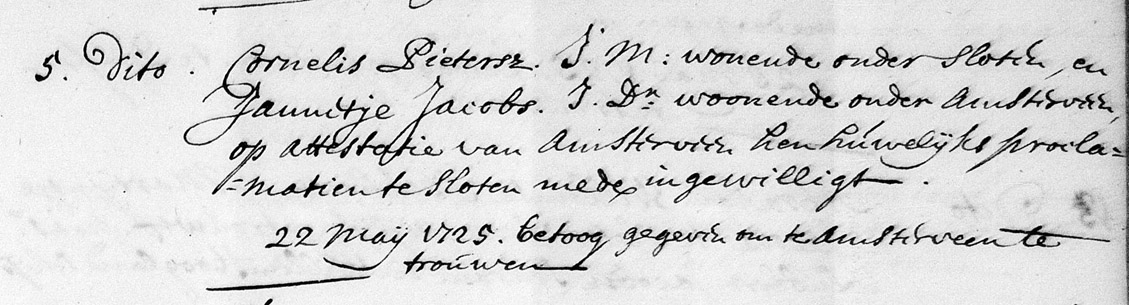 5. Dito. Cornelis Pietersz. J. M: wonende onder Sloten, en
Jannetje Jacobs. J. Dr. woonende onder Amsterveen,
op attestatie van Amsterveen hen huwelijks procla=
=matien te Sloten mede ingewilligt.
22 May 1725. betoog gegeven om te Amsterveen te
trouwen